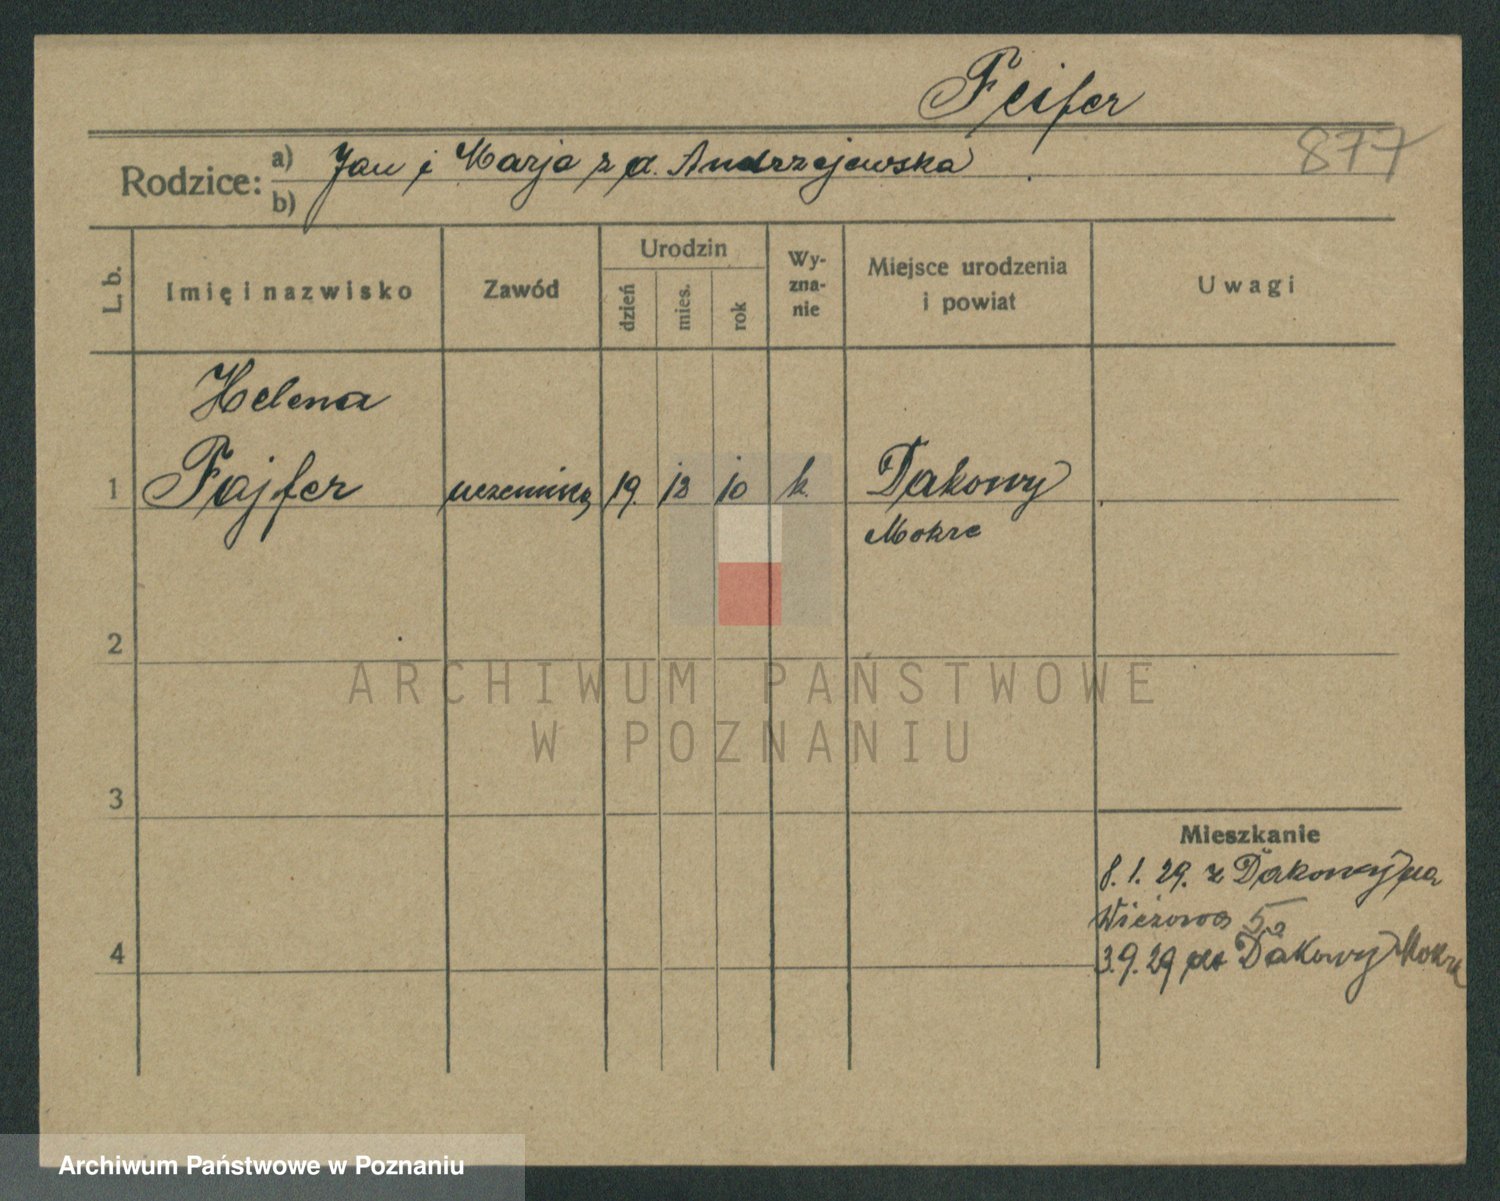 Feifer
877
Rodzice: a) Jan i Marja z d. Andrzejewska
b)
L. b. Imię i nazwisko Zawód Urodzin dzień mies. rok Wy-zna-nie Miejsce urodzenia i powiat Uwagi
Helena
1 Fajfer uczennica 19. 12 10 k. Dakowy
Mokre
2
ARCHIWUM PAŃSTWOWE
W POZNANIU
3
Mieszkanie
8. 1. 29. z Dakowy na
Wieżowa 5a
4 3.9.29 do Dakowy Mokre
Archiwum Państwowe w Poznaniu